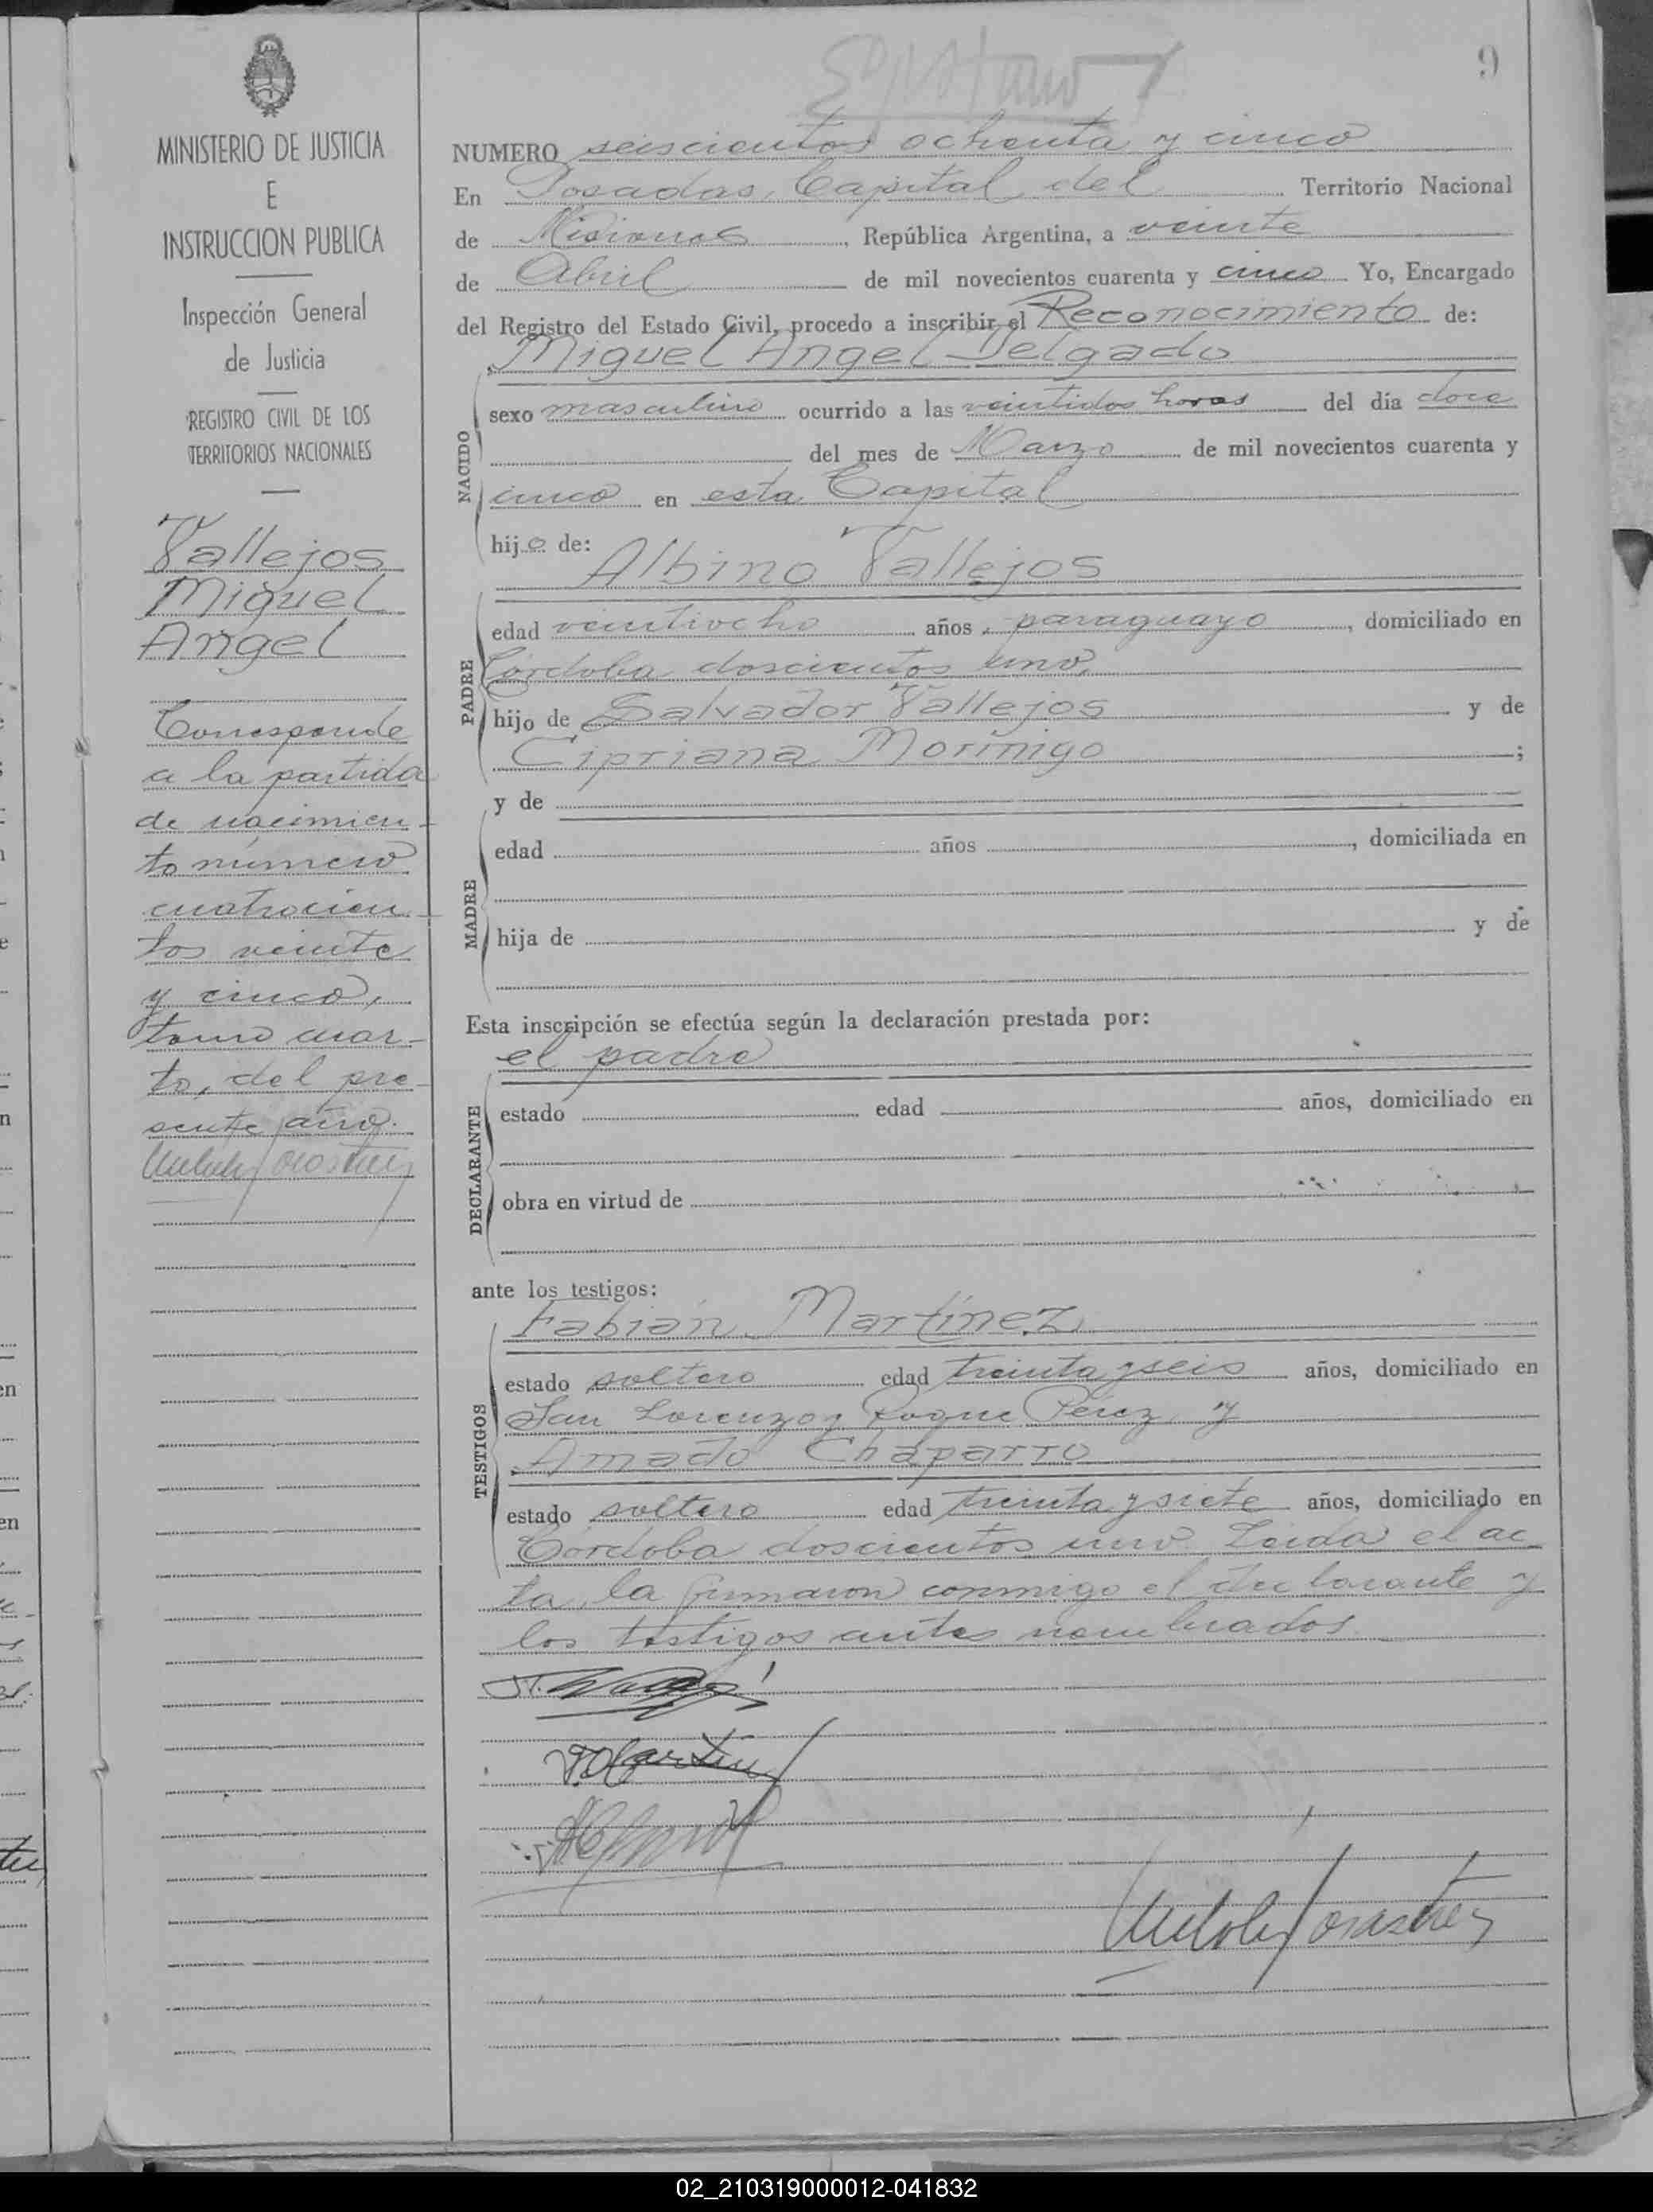 9
MINISTERIO DE JUSTICIA
E
INSTRUCCION PUBLICA
Inspección General
de Justicia
REGISTRO CIVIL DE LOS
TERRITORIOS NACIONALES
Vallejos
Miguel
Angel
Corresponde
a la partida
de nacimien-
to número
cuatrocien-
tos veinte
y cinco,
tomo cuar-
to, del pre-
sente año.
NUMERO seiscientos ochenta y cinco
En Posadas, Capital del Territorio Nacional
de Misiones, República Argentina, a veinte
de Abril de mil novecientos cuarenta y cinco Yo, Encargado
del Registro del Estado Civil, procedo a inscribir el Reconocimiento de:
Miguel Angel Delgado
NACIDO
sexo masculino ocurrido a las veintidos horas del día doce
del mes de Marzo de mil novecientos cuarenta y
cinco en esta Capital
hijo de:
Albino Vallejos
PADRE
edad veintiocho años, paraguayo, domiciliado en
Córdoba doscientos uno
hijo de Salvador Vallejos y de
Cipriana Morínigo;
y de
MADRE
edad años, domiciliada en
hija de y de
Esta inscripción se efectúa según la declaración prestada por:
el padre
DECLARANTE
estado edad años, domiciliado en
obra en virtud de
ante los testigos:
Fabián Martínez
TESTIGOS
estado soltero edad treinta y seis años, domiciliado en
San Lorenzo y Roque Pérez y
Amado Chaparro
estado soltero edad treinta y siete años, domiciliado en
Córdoba doscientos uno. Leída el ac
ta, la firmaron conmigo el declarante y
los testigos antes nombrados.
02_210319000012-041832